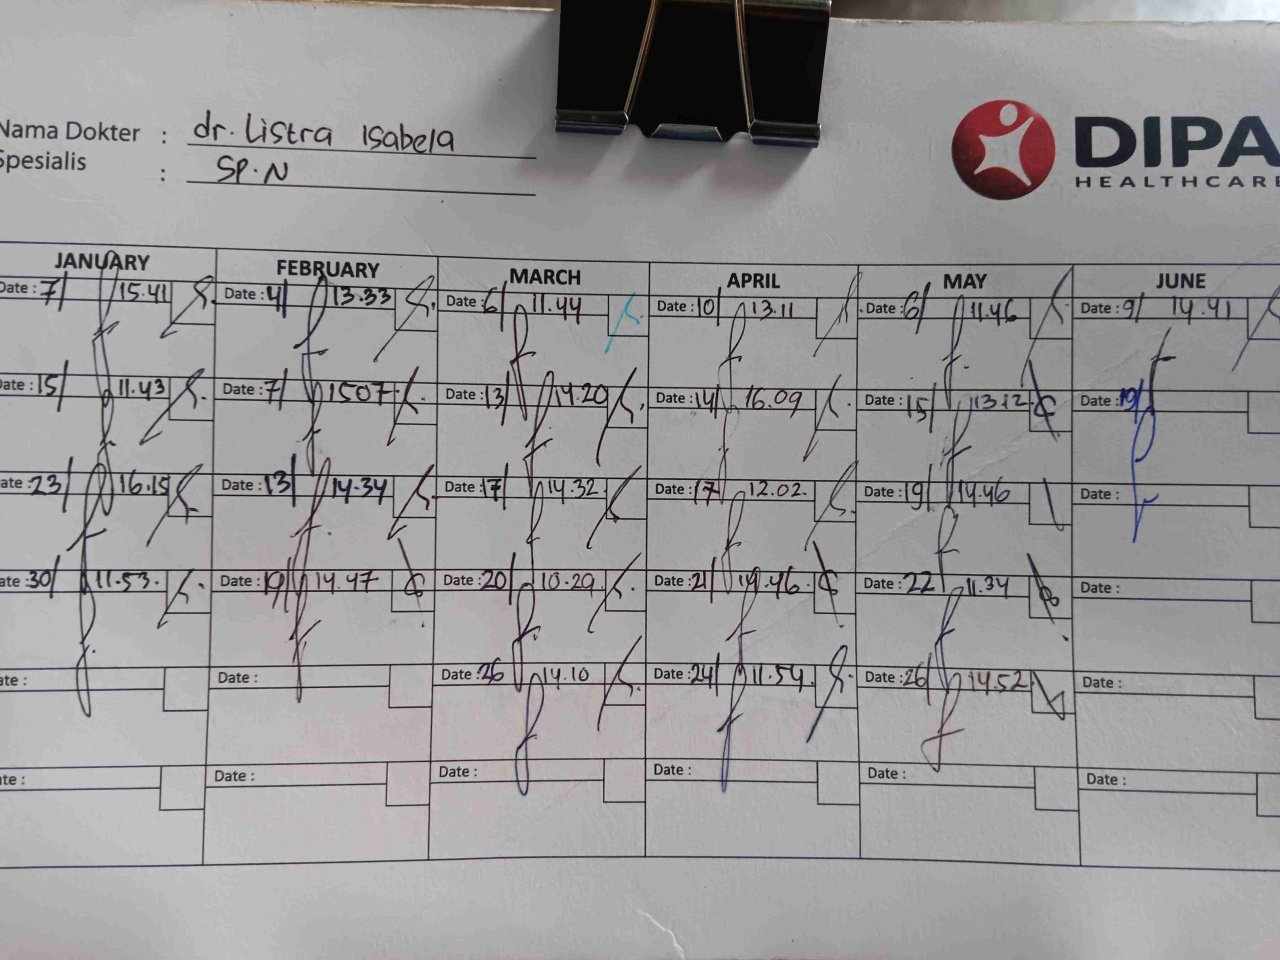 Nama Dokter : dr. Listra Isabela
Spesialis : SP.N
DIPA
HEALTHCARE
JANUARY FEBRUARY MARCH APRIL MAY JUNE
Date : 7/ 15.41 Date : 4/ 13.33 Date : 6/ 11.44 Date : 10/ 13.11 Date : 6/ 11.46 Date : 9/ 14.41
Date : 15/ 11.43 Date : 7/ 1507 Date : 13/ 14.20 Date : 14/ 16.09 Date : 15/ 13.12 Date : 19/
ate : 23/ 16.15 Date : 13/ 14.34 Date : 17/ 14.32 Date : 17/ 12.02. Date : 19/ 14.46 Date :
ate : 30/ 11.53. Date : 19/ 14.47 Date : 20/ 10.29 Date : 21/ 14.46 Date : 22/ 11.34 Date :
ate : Date : Date : 26 14.10 Date : 24/ 11.54 Date : 26/ 14.52 Date :
te : Date : Date : Date : Date : Date :